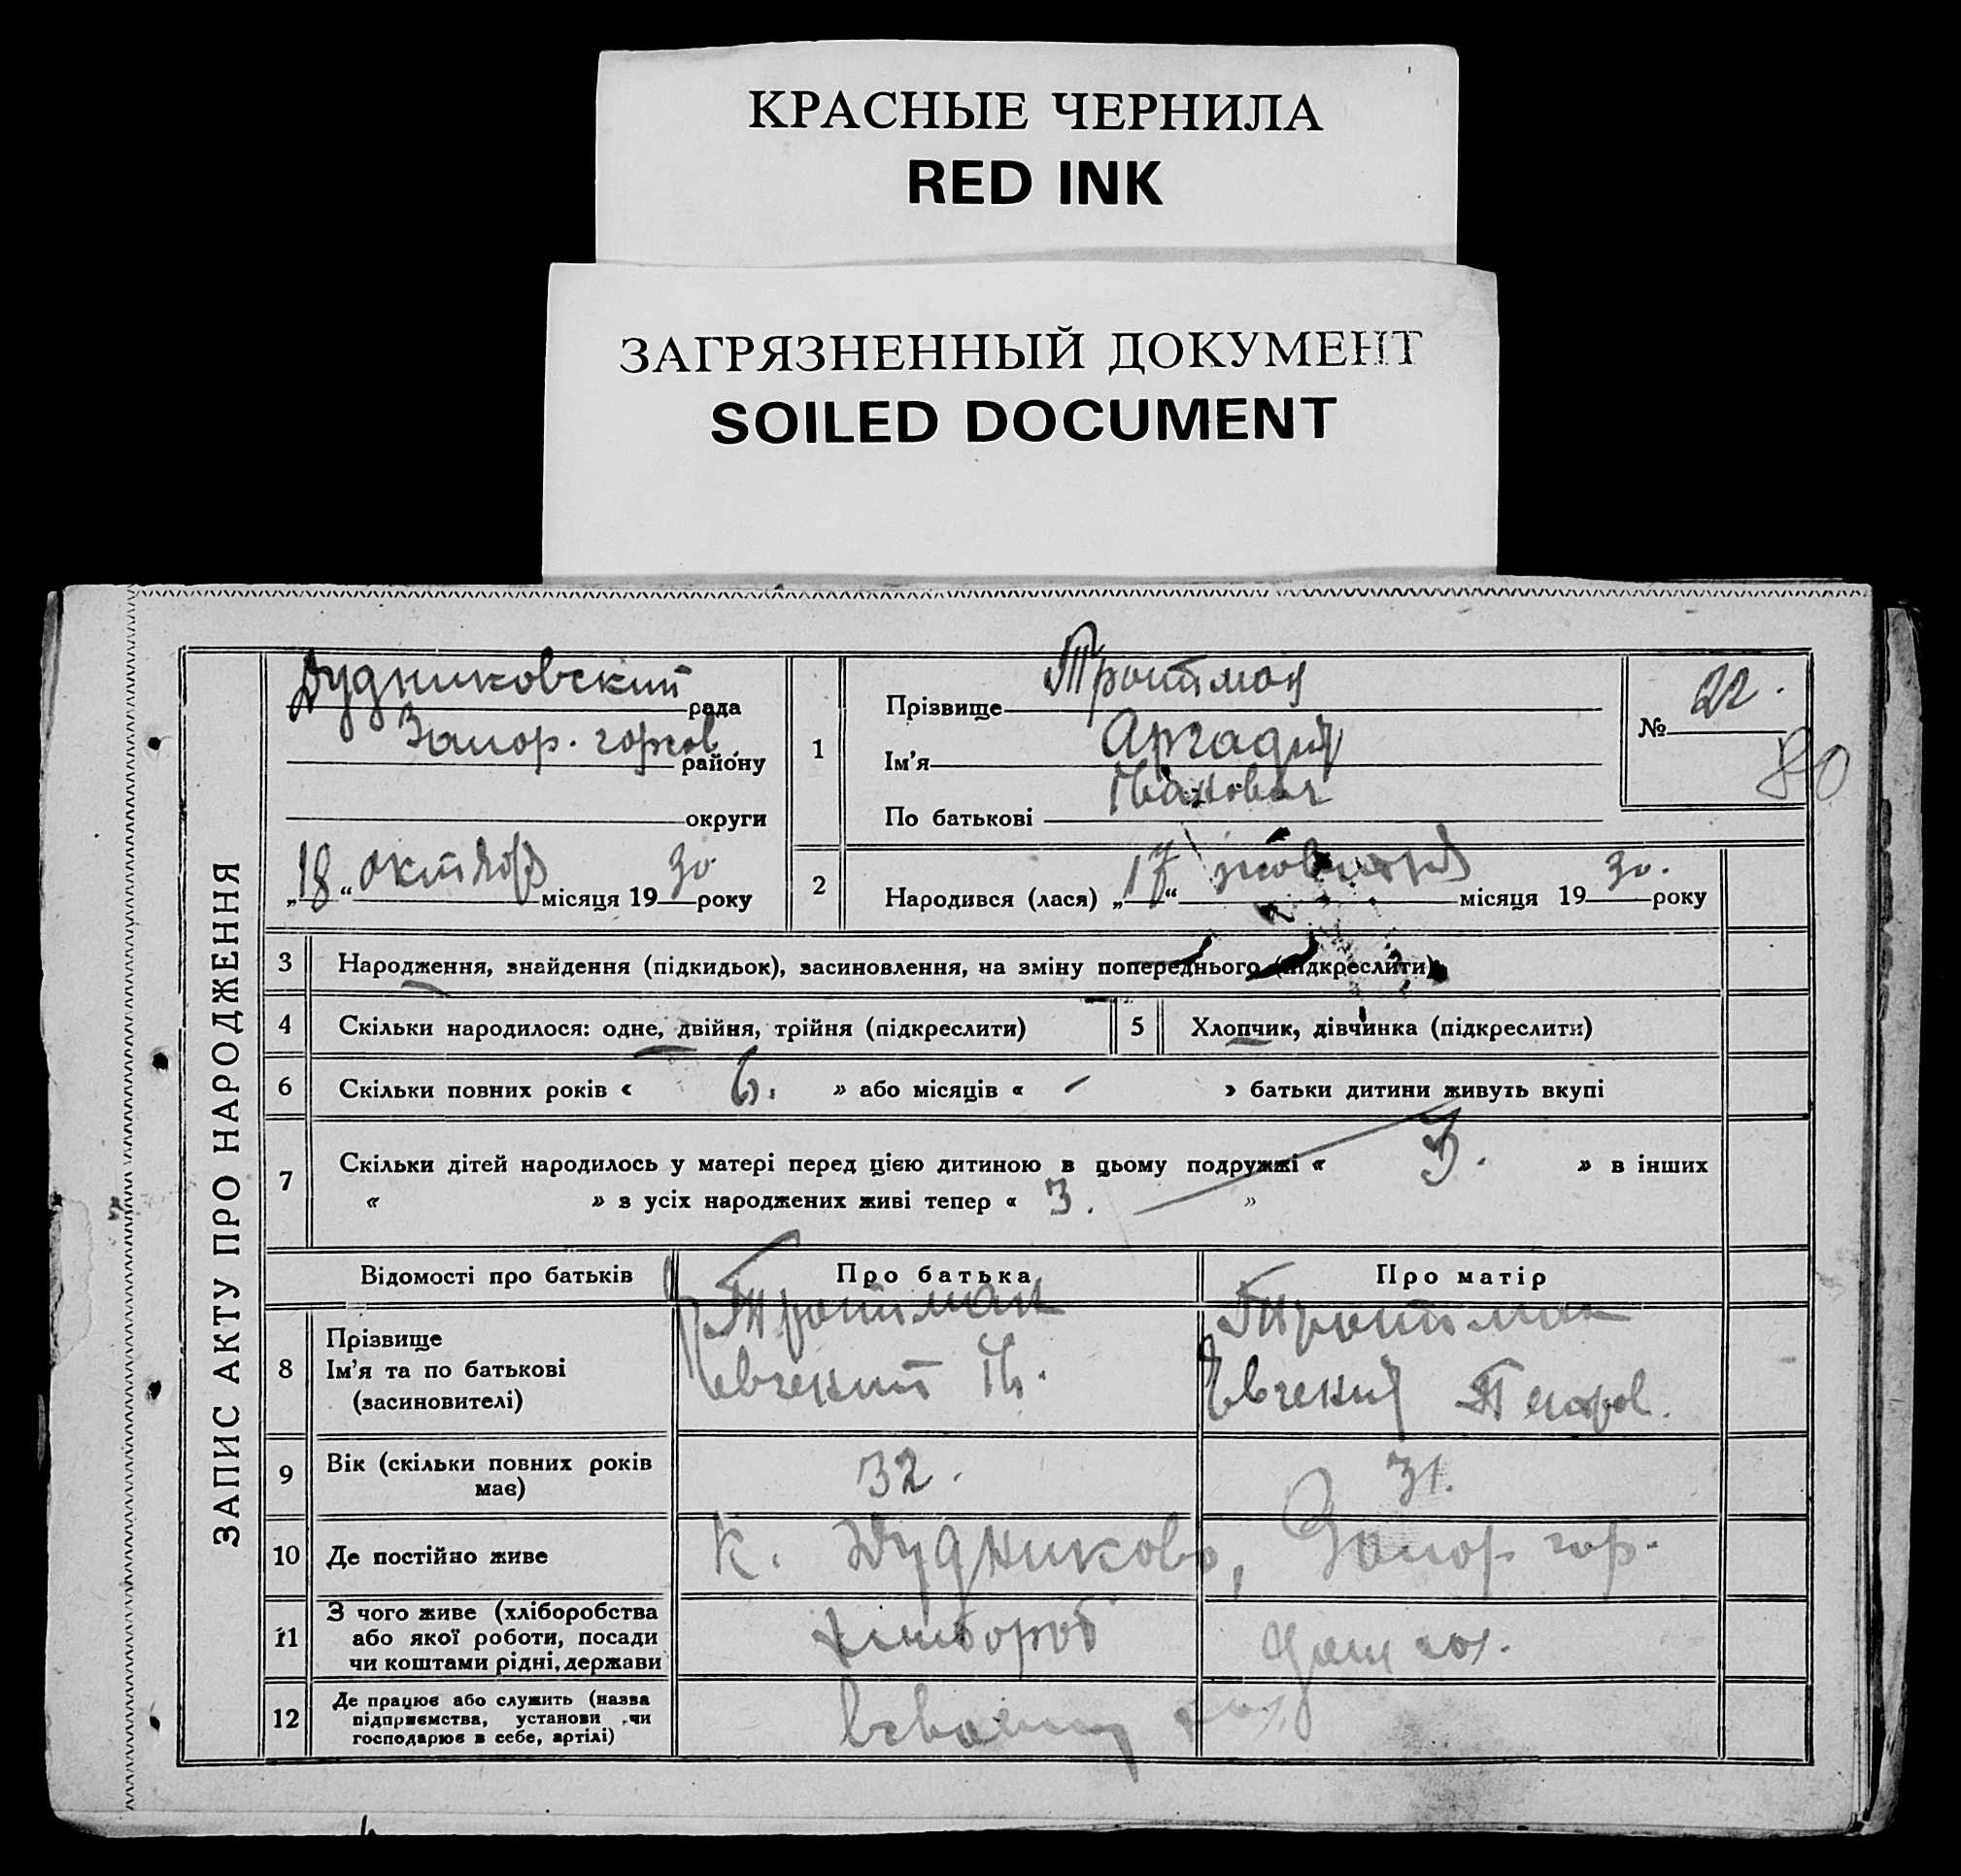 КРАСНЫЕ ЧЕРНИЛА
RED INK
ЗАГРЯЗНЕННЫЙ ДОКУМЕНТ
SOILED DOCUMENT
ЗАПИС АКТУ ПРО НАРОДЖЕННЯ
Дудниковский рада
Запор. горсов. району
округи
„18“ октября місяця 1930 року
1
Прізвище Тротман
Ім'я Аркадий
По батькові Иванович
№ 22.
80
2 Народився (лася) „17“ жовтня місяця 1930. року
3 Народження, знайдення (підкидьок), засиновлення, на зміну попереднього (підкреслити)
4 Скільки народилося: одне, двійня, трійня (підкреслити)
5 Хлопчик, дівчинка (підкреслити)
6 Скільки повних років « 6. » або місяців « – » батьки дитини живуть вкупі
7 Скільки дітей народилось у матері перед цією дитиною в цьому подружжі « 3. » в інших
« » з усіх народжених живі тепер « 3. »
Відомості про батьків Про батька Про матір
8 Прізвище Тротман Тротман
Ім'я та по батькові
(засиновителі)
9 Вік (скільки повних років має) 32. 31.
10 Де постійно живе к. Дудниково, Запор гор.
11 З чого живе (хліборобства
або якої роботи, посади
чи коштами рідні, держави
хлибороб дом хоз.
12 Де працює або служить (назва
підприємства, установи чи
господарює в себе, артілі)